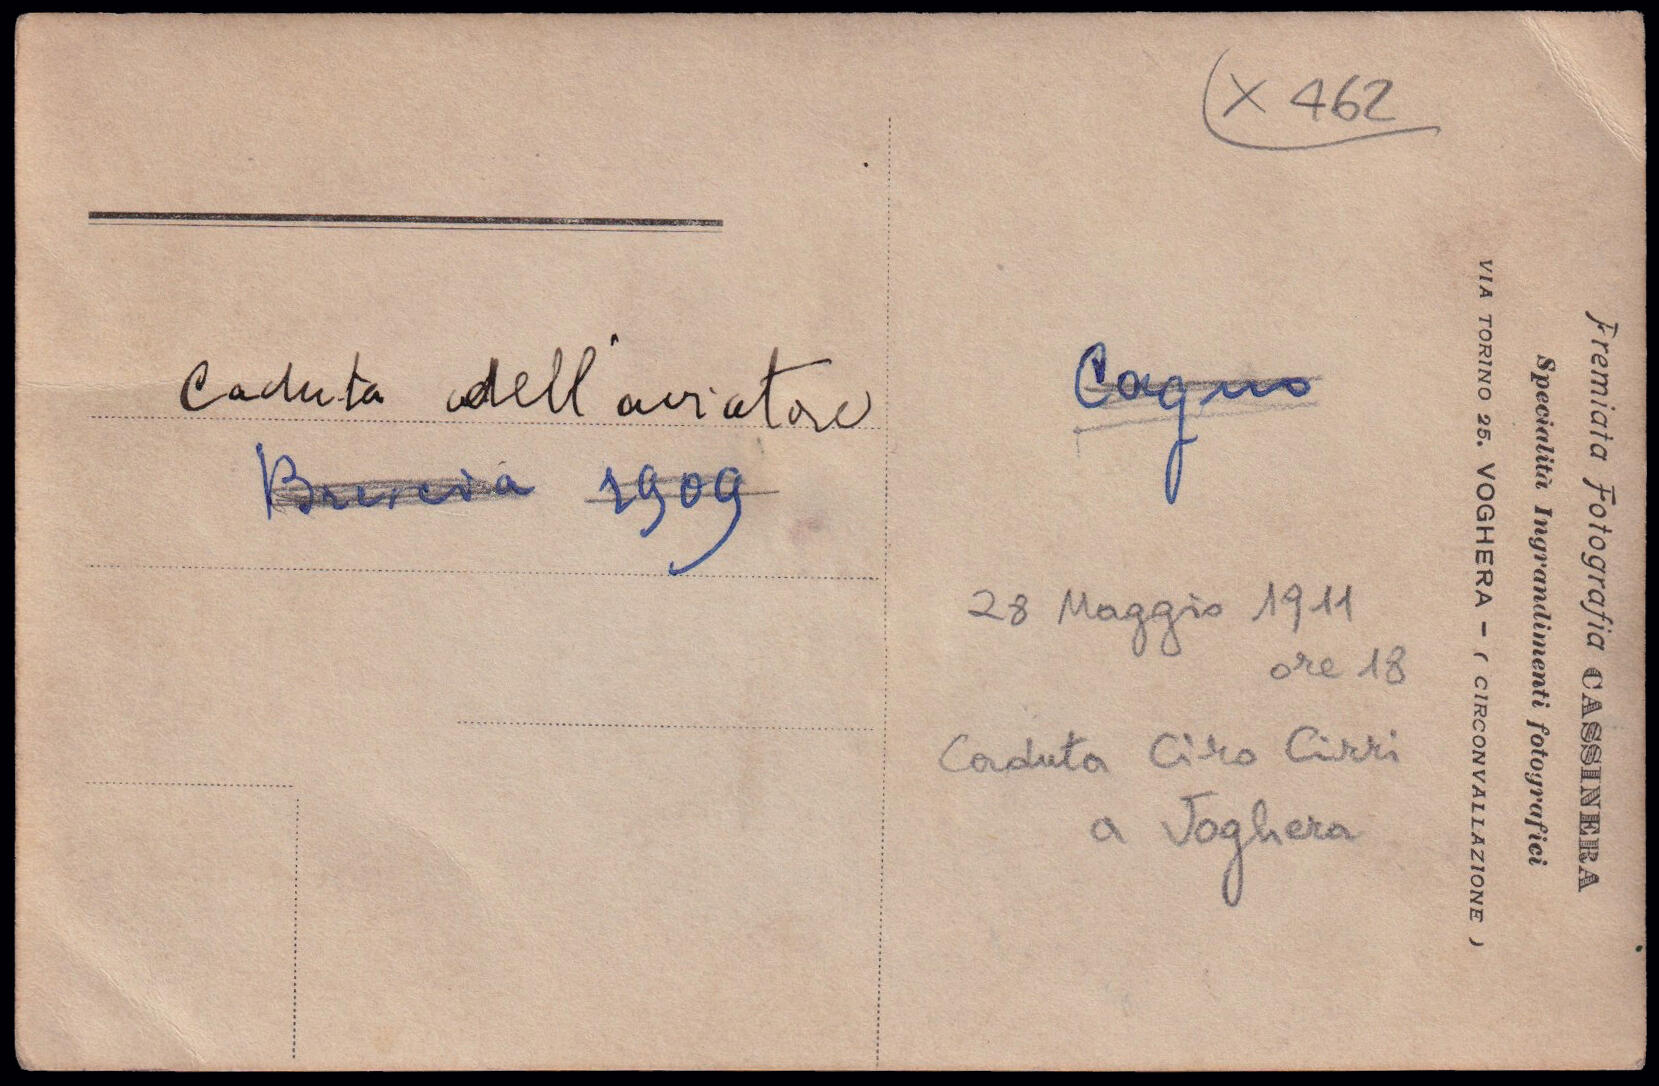 X 462
Caduta dell'aviatore Cagno
Brescia 1909
28 Maggio 1911
ore 18
Caduta Ciro Cirri
a Voghera
Premiata Fotografia CASSINERA
Specialità Ingrandimenti fotografici
VIA TORINO 25. VOGHERA - ( CIRCONVALLAZIONE )